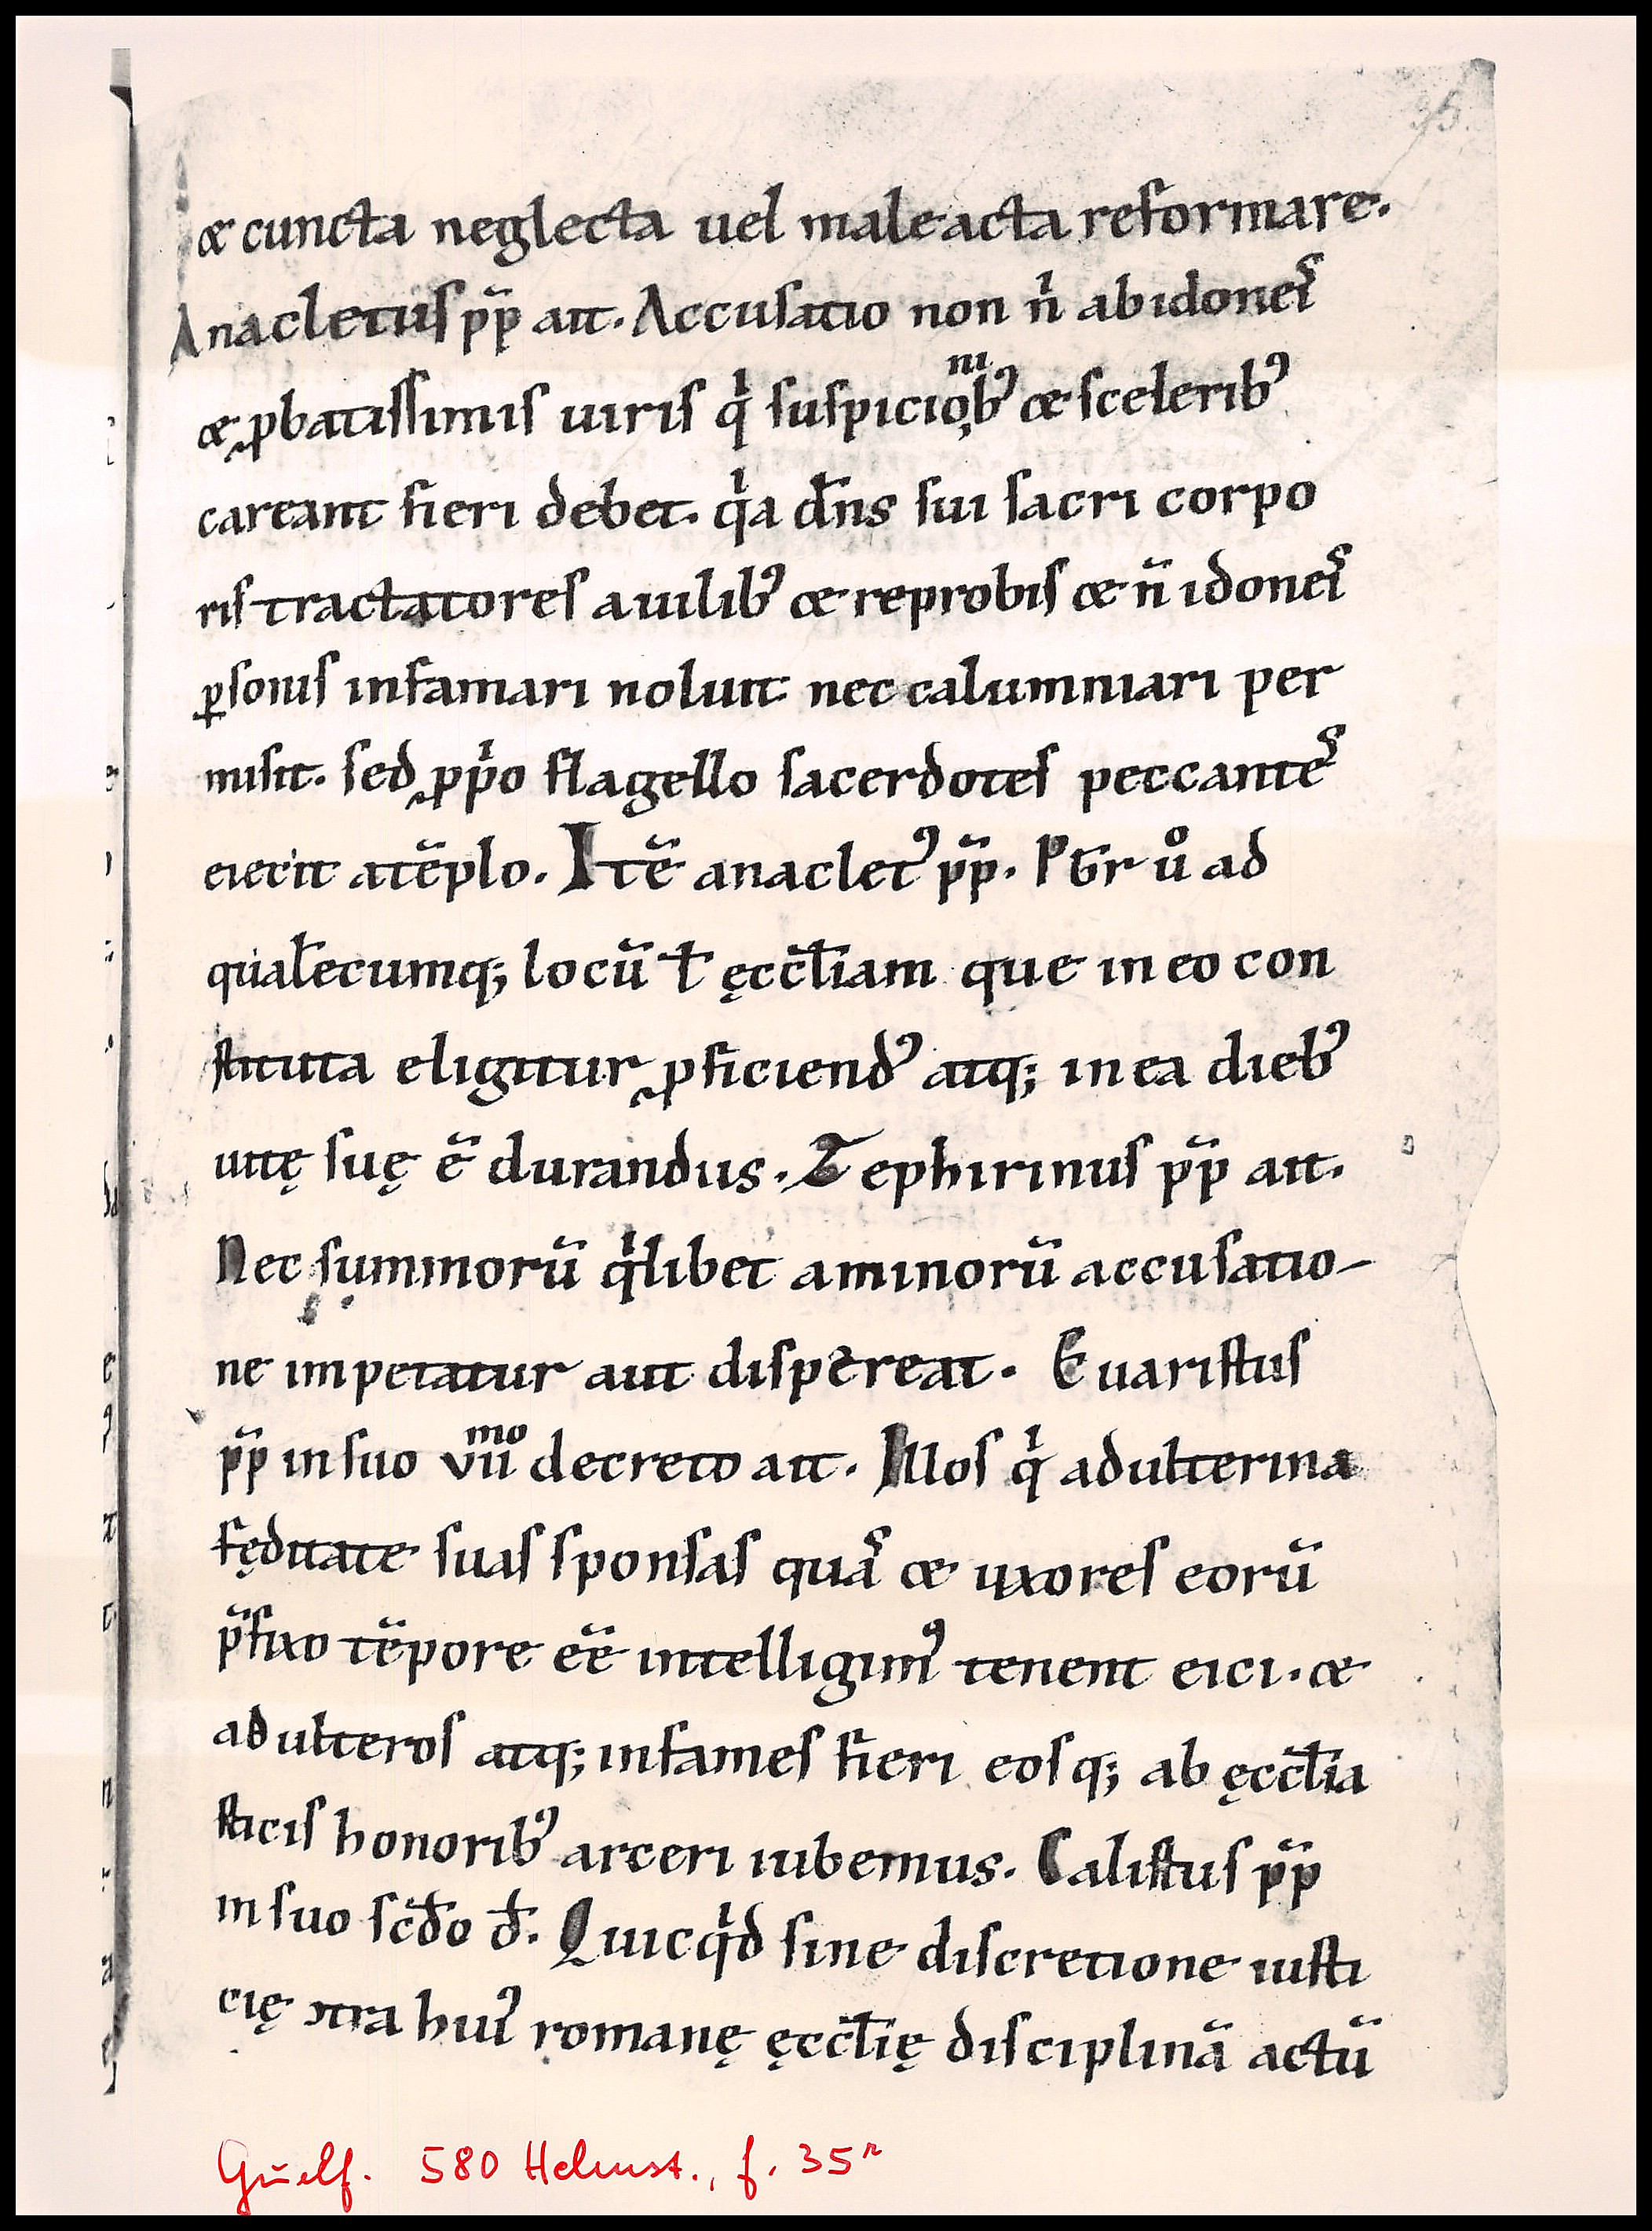 35.
& cuncta neglecta uel male acta reformare.
Anacletus pp̄ ait. Accusatio non nͥ ab idoneis
& ꝓbatissimis uiris qͥ suspicioniꝰb; & sceleribꝰ
careant fieri debet. qͥa dn̄s sui sacri corpo
ris tractatores a uilibꝰ & reprobis & n̄ idoneis
ꝑsonis infamari noluit nec calumniari per
misit. sed ꝓpͥo flagello sacerdotes peccantes
eiecit a tēplo. Itē anacletꝰ pp̄. Pᵒ ūr uͦ ad
qualecumq; locū ł ęccl̄iam que in eo con
stituta eligitur ꝓficiendꝰ atq; in ea diebꝰ
uitę suę ē durandus. Zephirinus pp̄ ait.
Nec summorū qͥlibet a minorū accusatio-
ne impetatur aut dispereat. Euaristus
pp̄ in suo vııᵐᵒ decreto ait. Illos qͥ adulterina
fęditate suas sponsas quas & uxores eorū
p̄fixo tēpore eē̄ intelligimꝰ tenent eici. &
adulteros atq; infames fieri eosq; ab ęccl̄ia
sticis honoribꝰ arceri iubemus. Calistus pp̄
in suo sc̄do đ. Quicqͥd sine discretione iusti
cię ɔtra huiꝰ romanę ęccl̄ię disciplinā actū
Guelf. 580 Helmst., f. 35ʳ